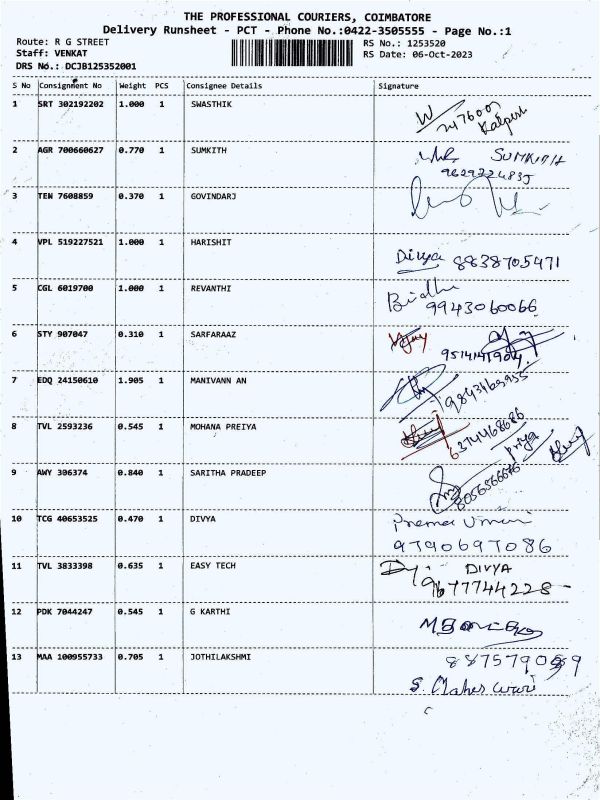 THE PROFESSIONAL COURIERS, COIMBATORE
Delivery Runsheet - PCT - Phone No.:0422-3505555 - Page No.:1
Route: R G STREET
RS No.: 1253520
Staff: VENKAT
RS Date: 06-Oct-2023
DRS No.: DCJB125352001
S No Consignment No Weight PCS Consignee Details Signature
1 SRT 302192202 1.000 1 SWASTHIK
Kalpesh
2 AGR 700660627 0.770 1 SUMKITH SUMKITH
9629724835
3 TEN 7608859 0.370 1 GOVINDARJ
4 VPL 519227521 1.000 1 HARISHIT
Divya 8838705471
5 CGL 6019700 1.000 1 REVANTHI
9943060066
6 STY 907047 0.310 1 SARFARAAZ
7 EDQ 24150610 1.905 1 MANIVANN AN
8 TVL 2593236 0.545 1 MOHANA PREIYA
6374468686
Priya
9 AWY 306374 0.840 1 SARITHA PRADEEP
10 TCG 40653525 0.470 1 DIVYA
9790697086
11 TVL 3833398 0.635 1 EASY TECH DIVYA
9677744228
12 PDK 7044247 0.545 1 G KARTHI
13 MAA 100955733 0.705 1 JOTHILAKSHMI
S. Maheswari